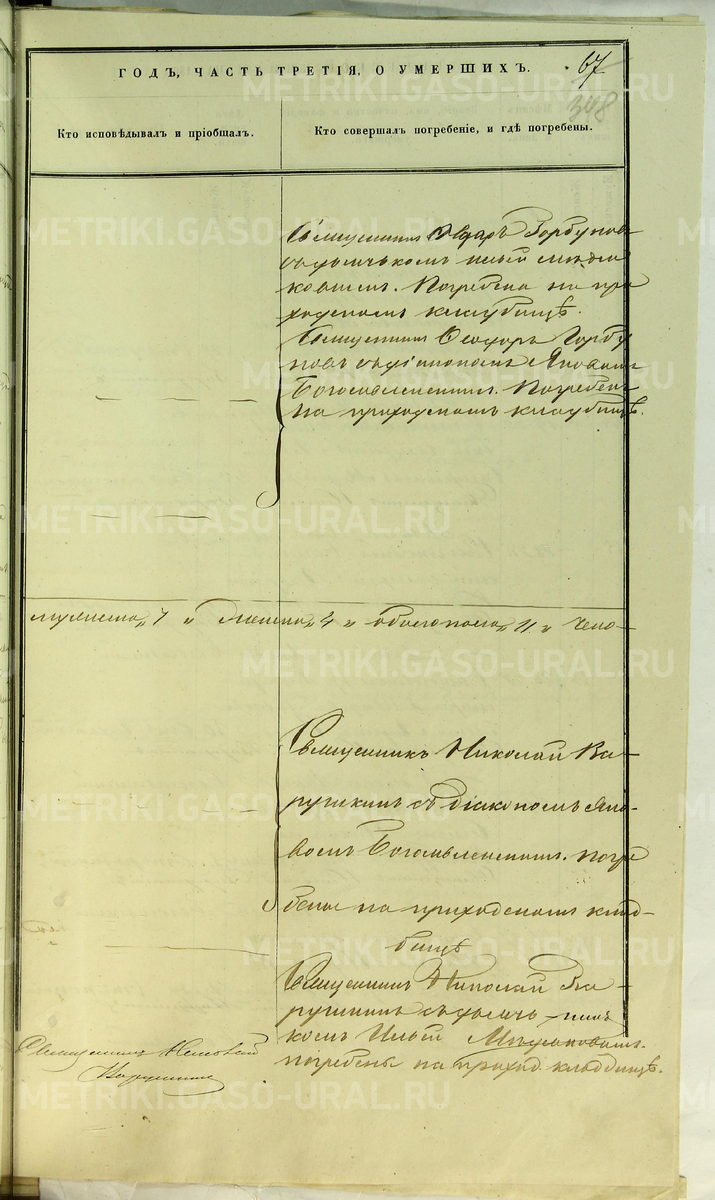 ГОДЪ, ЧАСТЬ ТРЕТІЯ, О УМЕРШИХЪ.
67
348
Кто исповѣдывалъ и пріобщалъ.
Кто совершалъ погребеніе, и гдѣ погребены.
Священникъ Ѳеодоръ Горбуновъ
съ дьячкомъ
Погребена на при
ходскомъ кладбищѣ.
Священникъ Ѳеодоръ Горбу
новъ съ діакономъ Яковомъ
Богоявленскимъ. Погребенъ
на приходскомъ кладбищѣ.
мужеска „ 7 „ женска „ 4 „ обоего пола „ 11 „ чело-
Священникъ Николай Ва-
рушкинъ съ діакономъ Яко-
вомъ Богоявленскимъ. погре
бены на приходскомъ клад-
бищѣ
Священникъ Николай Ва-
рушкинъ съ
комъ
погребены на приход. кладбищѣ.
Священникъ Николай
Варушкинъ
METRIKI.GASO-URAL.RU